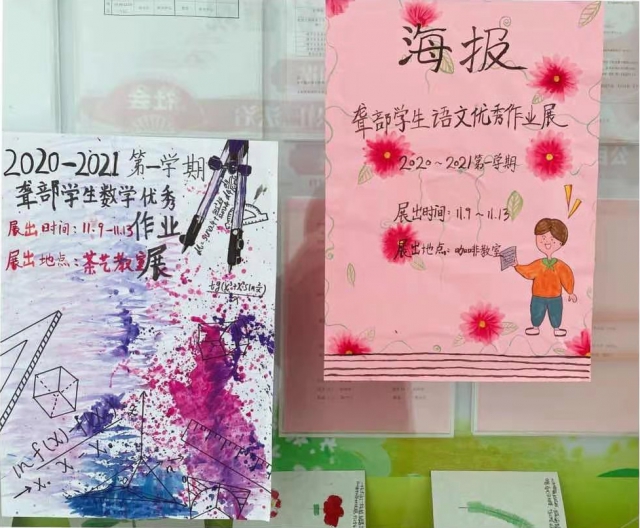 2020-2021 第一学期
聋部学生数学优秀
作业
展
展出时间：11.9-11.13
展出地点：茶艺教室
海报
聋部学生语文优秀作业展
2020~2021第一学期
展出时间：11.9~11.13
展出地点：咖啡教室